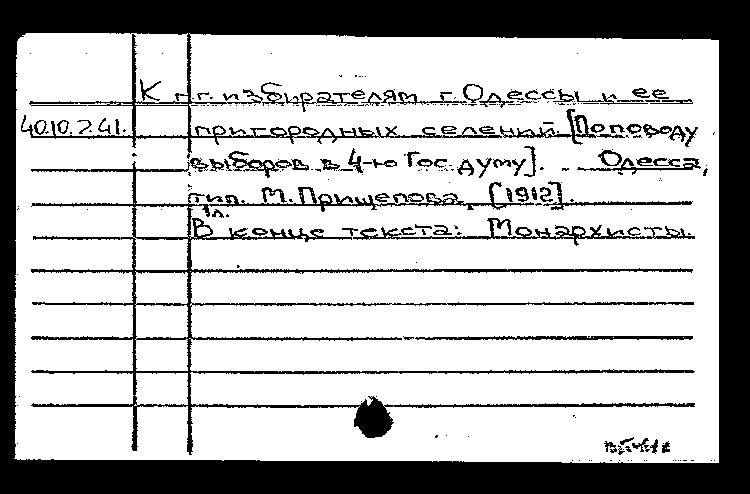 К г.г. избирателям г. Одессы и ее
40.10.2.41. пригородных селений [По поводу
выборов в 4-ю Гос думу]. Одесса,
тип. М. Прищепова, [1912].
1л.
В конце текста: Монархисты.